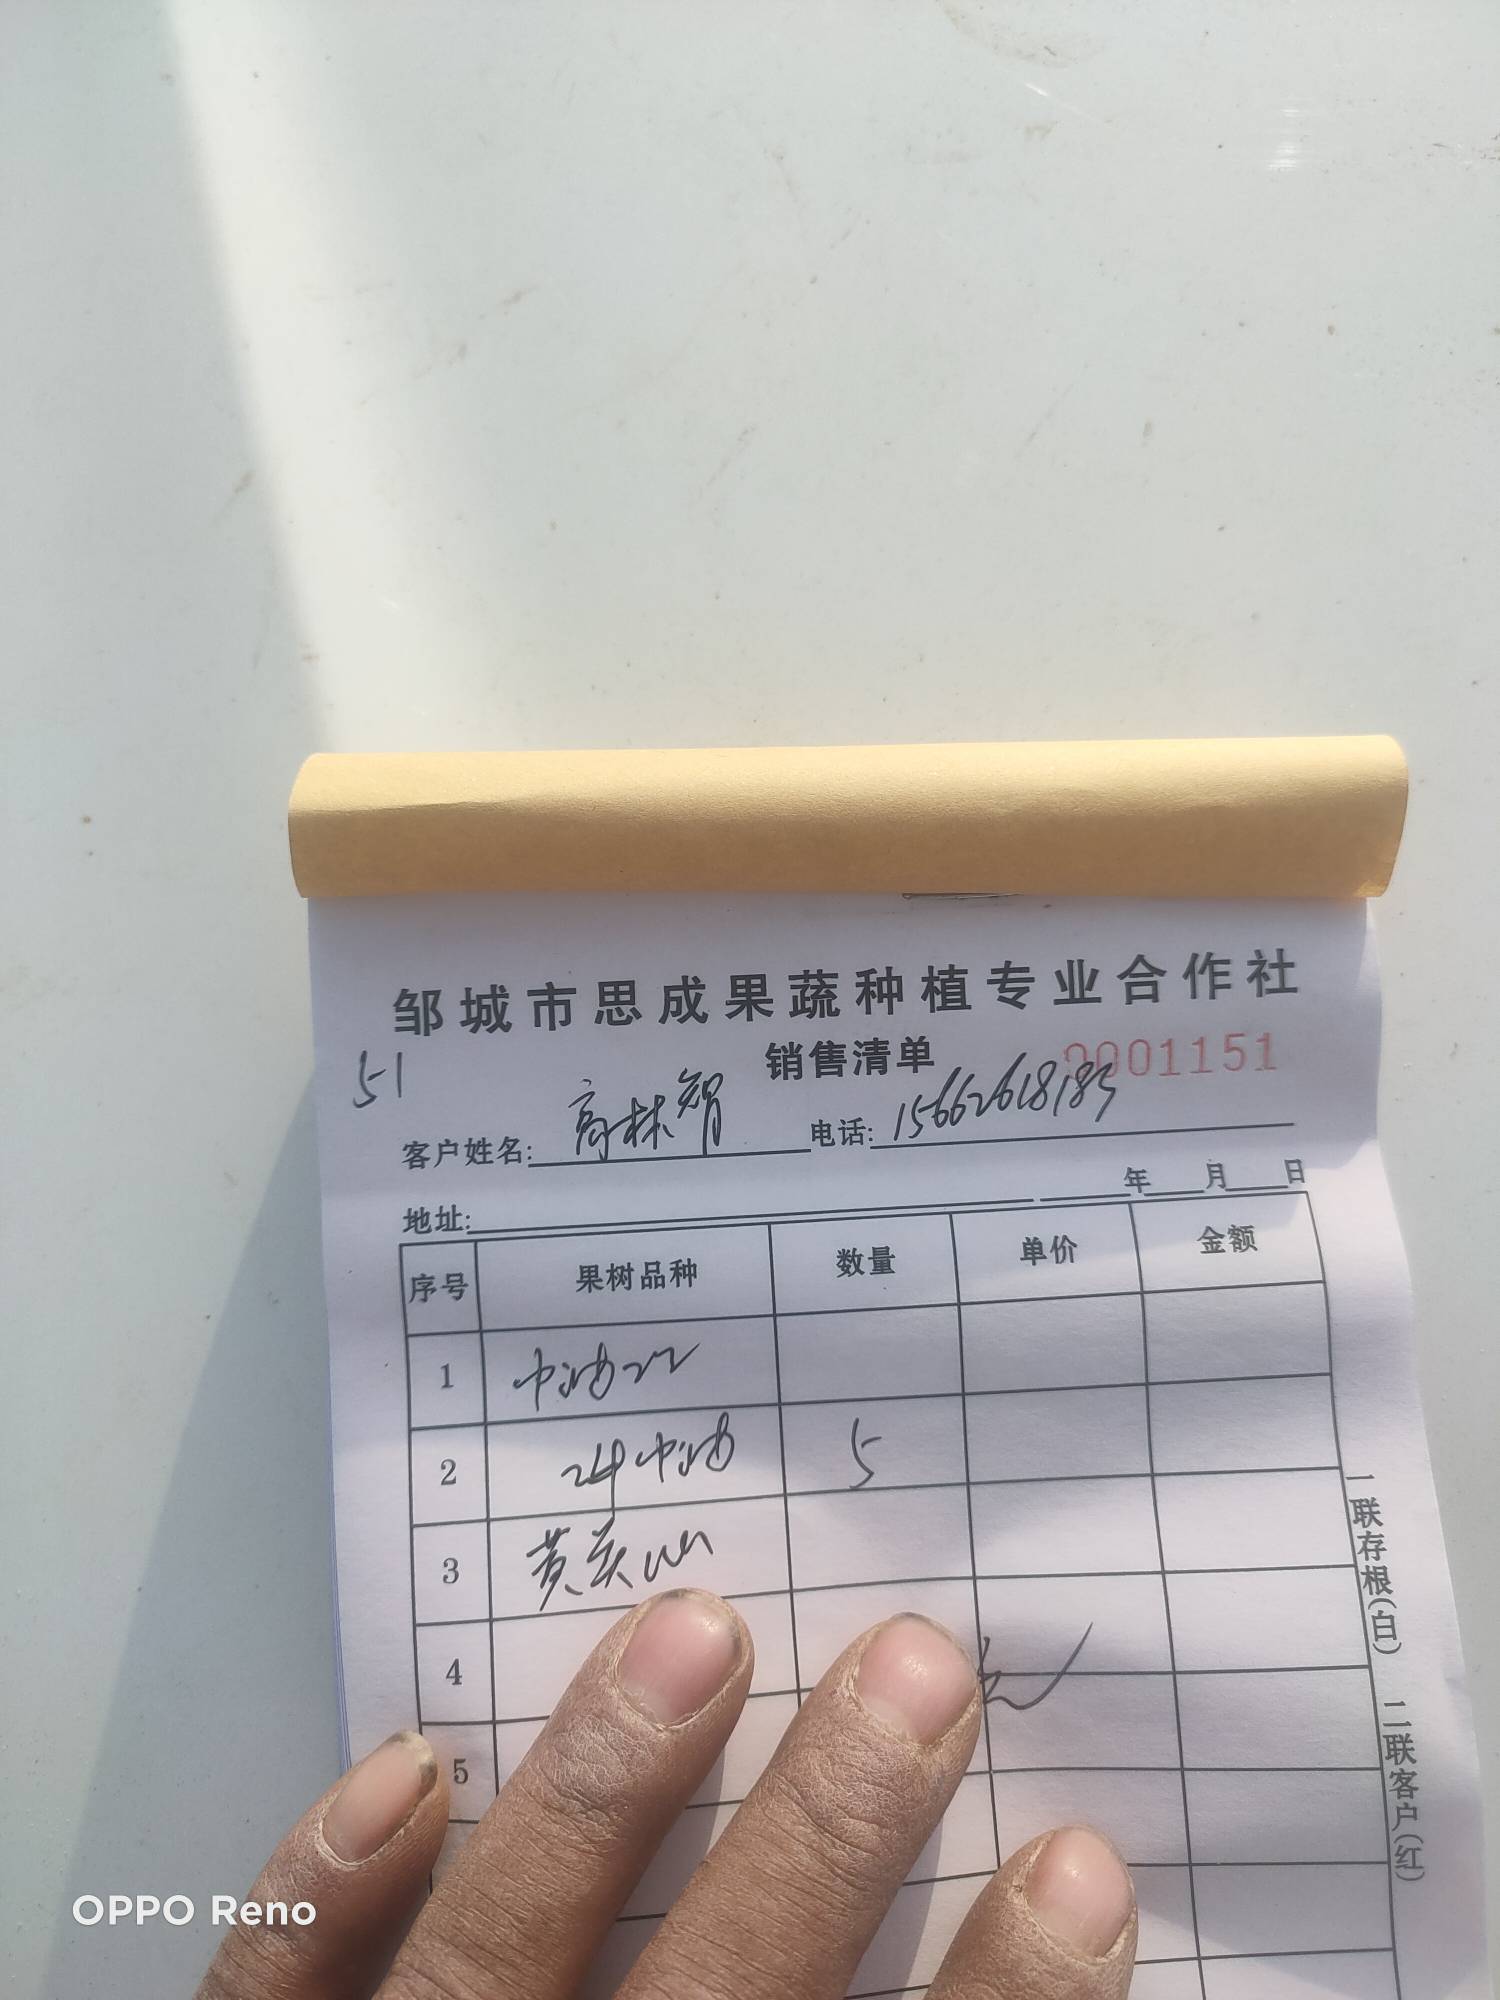 邹城市思成果蔬种植专业合作社
销售清单 0001151
51
客户姓名: 高林智 电话: 15662618183
地址: 年 月 日
序号 果树品种 数量 单价 金额
1 中油22
2 24中油 5
3 黄关山
4
5
一联存根(白) 二联客户(红)
OPPO Reno